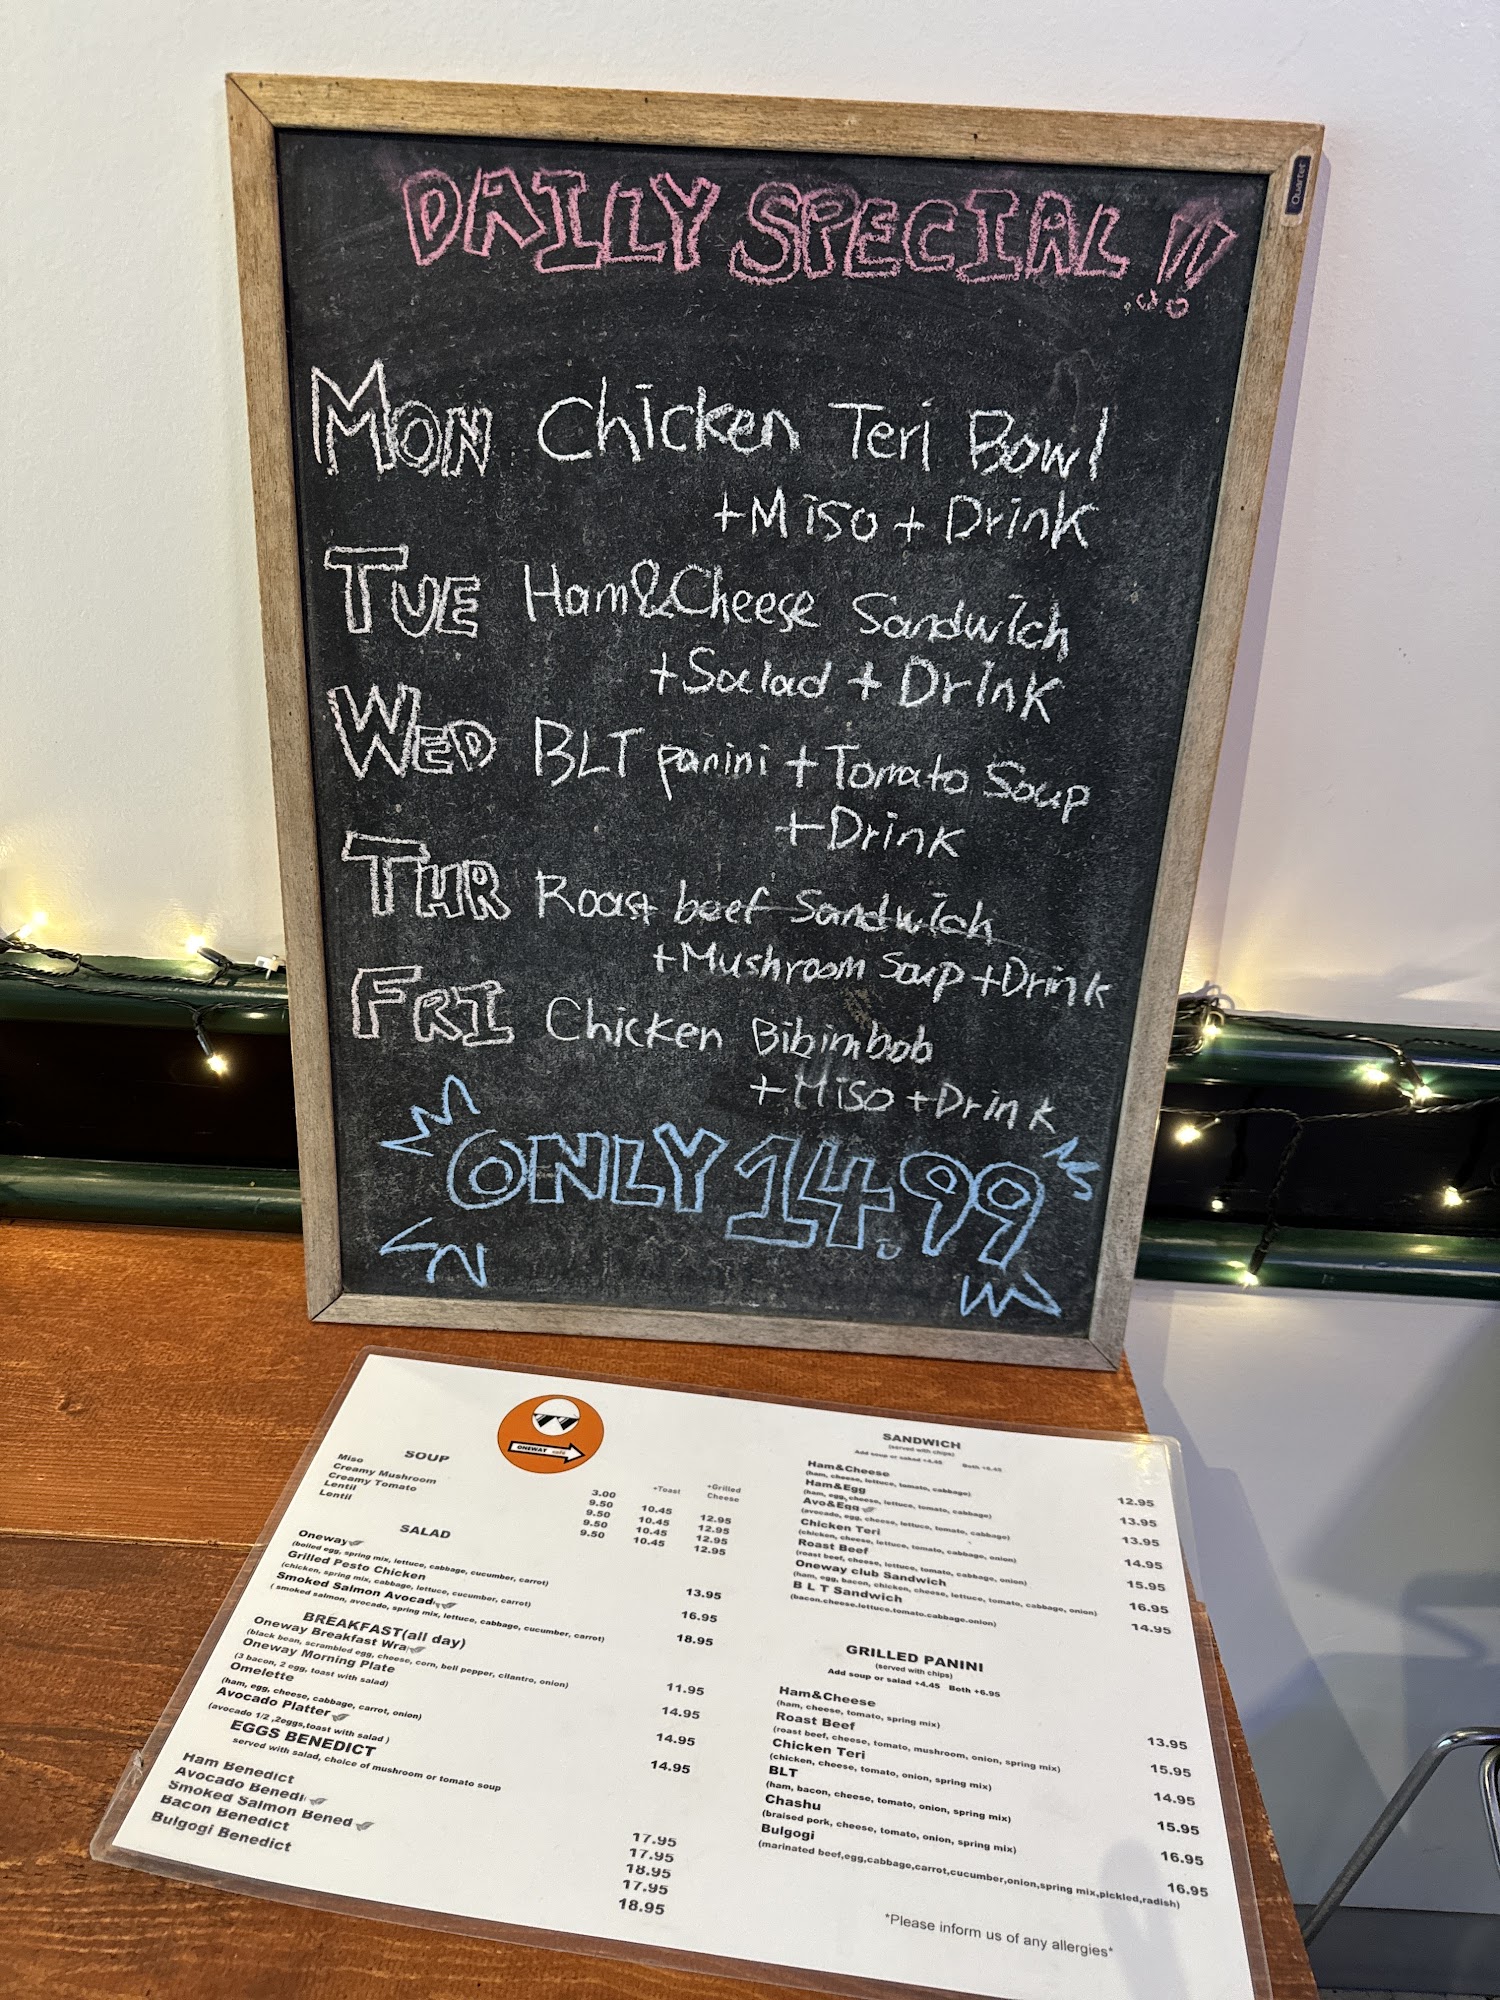 DAILY SPECIAL!!
Quartet
MON Chicken Teri Bowl
+Miso + Drink
TUE Ham&Cheese Sandwich
+Salad + Drink
WED BLT panini + Tomato Soup
+Drink
THR Roast beef Sandwich
+Mushroom Soup +Drink
FRI Chicken Bibimbob
+Miso +Drink
ONLY 14.99
ONEWAY cafe
SOUP
+Toast +Grilled Cheese
Miso 3.00
Creamy Mushroom 9.50 10.45 12.95
Creamy Tomato 9.50 10.45 12.95
Lentil 9.50 10.45 12.95
Lentil 9.50 10.45 12.95
SALAD
Oneway
(boiled egg, spring mix, lettuce, cabbage, cucumber, carrot) 13.95
Grilled Pesto Chicken
(chicken, spring mix, cabbage, lettuce, cucumber, carrot) 16.95
Smoked Salmon Avocad
( smoked salmon, avocado, spring mix, lettuce, cabbage, cucumber, carrot) 18.95
BREAKFAST(all day)
Oneway Breakfast Wra
(black bean, scrambled egg, cheese, corn, bell pepper, cilantro, onion) 11.95
Oneway Morning Plate
(3 bacon, 2 egg, toast with salad) 14.95
Omelette
(ham, egg, cheese, cabbage, carrot, onion) 14.95
Avocado Platter
(avocado 1/2 ,2eggs,toast with salad ) 14.95
EGGS BENEDICT
served with salad, choice of mushroom or tomato soup
Ham Benedict 17.95
Avocado Benedi 17.95
Smoked Salmon Bened 18.95
Bacon Benedict 17.95
Bulgogi Benedict 18.95
SANDWICH
(served with chips)
Add soup or salad +4.45 Both +6.45
Ham&Cheese
(ham, cheese, lettuce, tomato, cabbage) 12.95
Ham&Egg
(ham, egg, cheese, lettuce, tomato, cabbage) 13.95
Avo&Egg
(avocado, egg, cheese, lettuce, tomato, cabbage) 13.95
Chicken Teri
(chicken, cheese, lettuce, tomato, cabbage, onion) 14.95
Roast Beef
(roast beef, cheese, lettuce, tomato, cabbage, onion) 15.95
Oneway club Sandwich
(ham, egg, bacon, chicken, cheese, lettuce, tomato, cabbage, onion) 16.95
B L T Sandwich
(bacon.cheese.lettuce.tomato.cabbage.onion) 14.95
GRILLED PANINI
(served with chips)
Add soup or salad +4.45 Both +6.95
Ham&Cheese
(ham, cheese, tomato, spring mix) 13.95
Roast Beef
(roast beef, cheese, tomato, mushroom, onion, spring mix) 15.95
Chicken Teri
(chicken, cheese, tomato, onion, spring mix) 14.95
BLT
(ham, bacon, cheese, tomato, onion, spring mix) 15.95
Chashu
(braised pork, cheese, tomato, onion, spring mix) 16.95
Bulgogi
(marinated beef,egg,cabbage,carrot,cucumber,onion,spring mix,pickled,radish) 16.95
*Please inform us of any allergies*